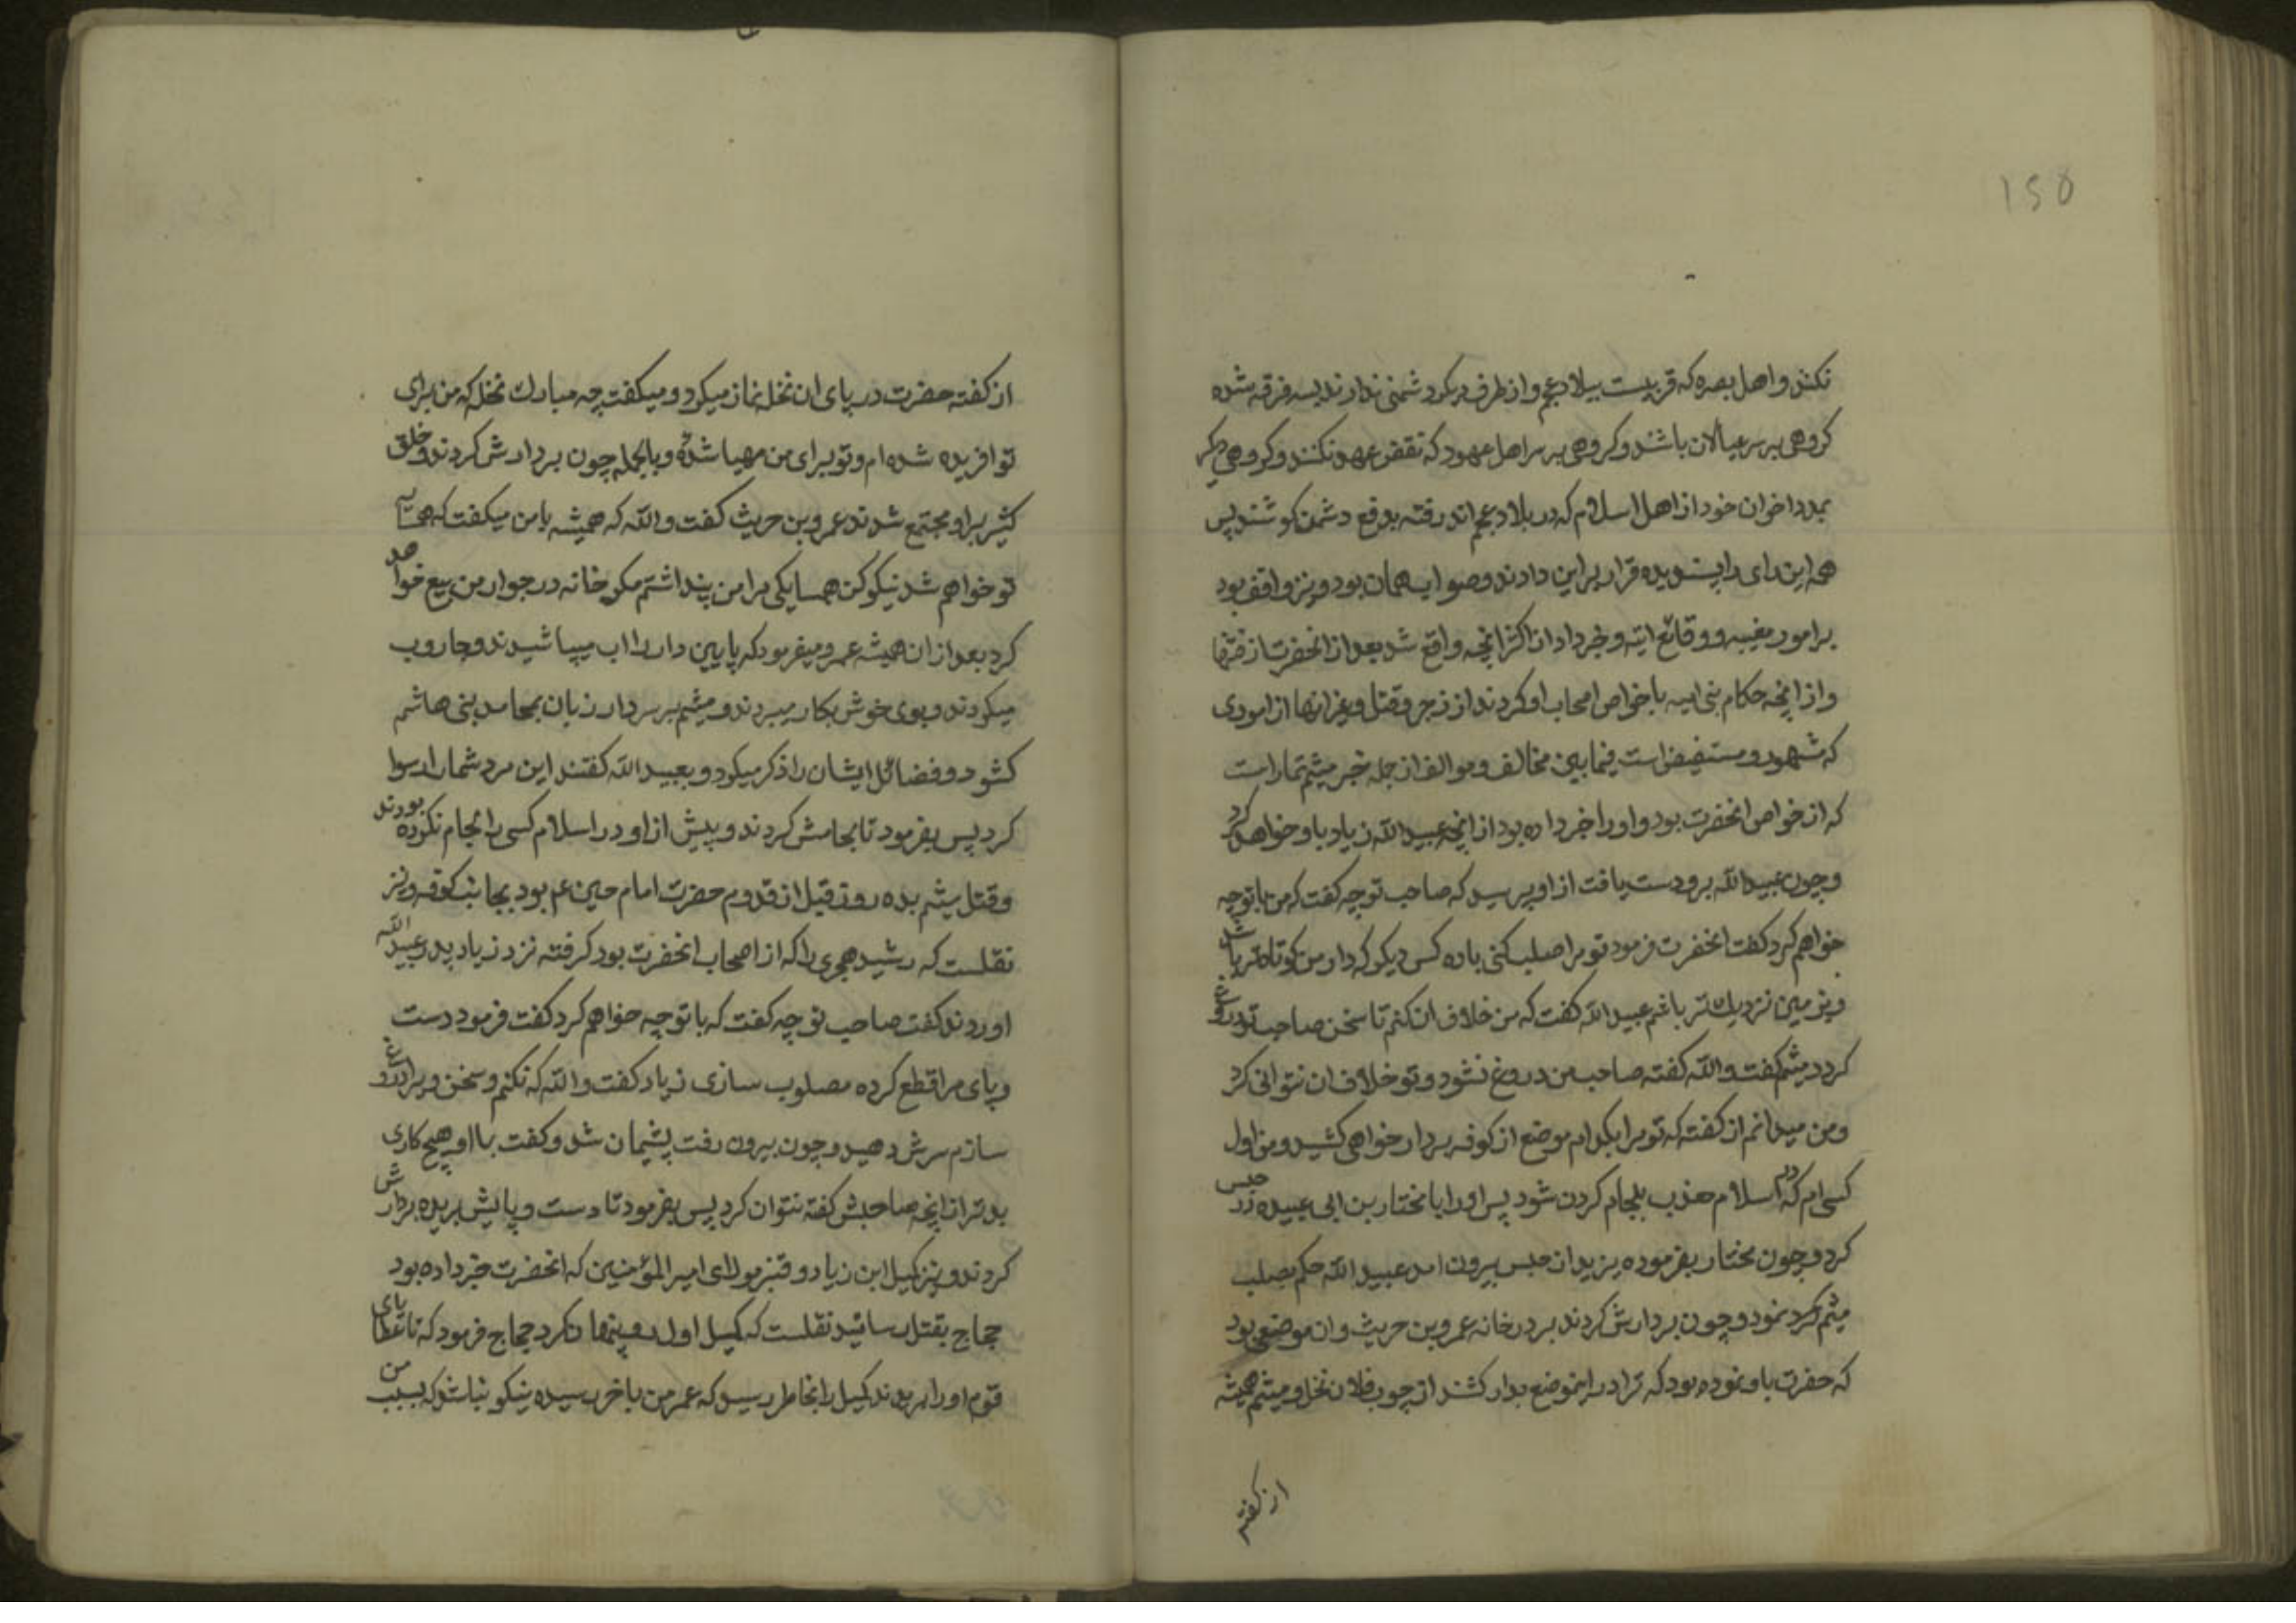 ۱۵۵
نکنند و اهل بصره که قریبست ببلاد عجم و از طرف دیکر دشمنی ندارند بسه فرقه شده
کروهی بر سر عیالان باشند و کروهی بر سر اهل عهود که نقض عهد نکنند و کروهی دیکر
بمدد اخوان خود از اهل اسلام که در بلاد عجم اند رفته بدفع دشمن کوشند پس
همه این رای را پسندیده قرار بر این دادند و صواب همان بود و نیز واقف بود
بر امور مغیبه و وقائع اتیه و خبر داد از اکثر انچه واقع شد بعد از انحضرت از فتنها
و از انچه حکام بنی امیه با خواص اصحاب او کردند از زجر و قتل و غیر انها از اموری
که مشهور و مستفیض است فیما بین مخالف و موالف از جمله خبر میثم تمار است
که از خواص انحضرت بود و او را خبر داده بود از انچه عبید الله زیاد با او خواهد کرد
و چون عبید الله برو دست یافت از او پرسید که صاحب تو چه کفت که من با تو چه
خواهم کرد کفت انحضرت فرمود تو مرا صلب کنی با ده کس دیکر که دار من کوتاه‌تر باشد
و بزمین نزدیك تر باشم عبید الله کفت که من خلاف ان کنم تا سخن صاحب تو دروغ
کردد میثم کفت والله کفته صاحب من دروغ نشود و تو خلاف ان نتوانی کرد
و من میدانم از کفته که تو مرا بکدام موضع از کوفه بردار خواهی کشید و من اول
کسی ام که در اسلام معذب بلجام کردن شود پس او را با مختار بن ابی عبیده در حبس
کرد و چون مختار بفرموده یزید از حبس بیرون امد عبید الله حکم بصلب
میثم کرد نمود و چون بردارش کردند بر در خانه عمرو بن حریث و ان موضعی بود
که حضرت باو نموده بود که ترا در اینموضع بدار کشند از چوب فلان نخل و میثم همیشه
از کفته
از کفته حضرت در پای ان نخل نماز میکرد و میکفت چه مبارك نخله که من برای
تو افریده شده ام و تو برای من مهیا شدهٔ و بالجمله چون بردارش کردند و خلق
کثیر برا و مجتمع شدند عمرو بن حریث کفت والله که همیشه با من میکفت که همسایه
تو خواهم شد نیکو کن همسایکی مرا من پنداشتم مکر خانه در جوار من بیع خواهد
کرد بعد از ان همیشه عمرو میفرمود که پایین دار را اب میپاشیدند و جاروب
میکردند و بوی خوش بکار میبردند و میثم بر سر دار زبان بمحامد بنی هاشم
کشود و فضائل ایشان را ذکر میکرد و بعبید الله کفتند این مرد شما را رسوا
کرد پس بفرمود تا بجامش کردند و پیش از او در اسلام کسی را لجام نکرده بودند
و قتل میثم بده روز قبل از قدوم حضرت امام حسین عم بود بجانب کوفه و نیز
نقلست که رشید هجری را که از اصحاب انحضرت بود کرفته نزد زیاد پدر عبید الله
اوردند کفت صاحب تو چه کفت که با تو چه خواهم کرد کفت فرمود دست
و پای مرا قطع کرده مصلوب سازی زیاد کفت والله که نکنم و سخن ویرا دروغ
سازم سرش دهید و چون بیرون رفت پشیمان شد و کفت با او هیچ کاری
بدتر از انچه صاحبش کفته نتوان کرد پس بفرمود تا دست و پایش بریده بردارش
کردند و نیز کمیل ابن زیاد و قنبر مولای امیر المؤمنین که انحضرت خبر داده بود
حجاج بقتل رسانید نقلست که کمیل اول رو پنهان کرد حجاج فرمود که تا عطایای
قوم او را بریدند کمیل را بخاطر رسید که عمر من باخر رسیده نیکو نباشد که بسبب من